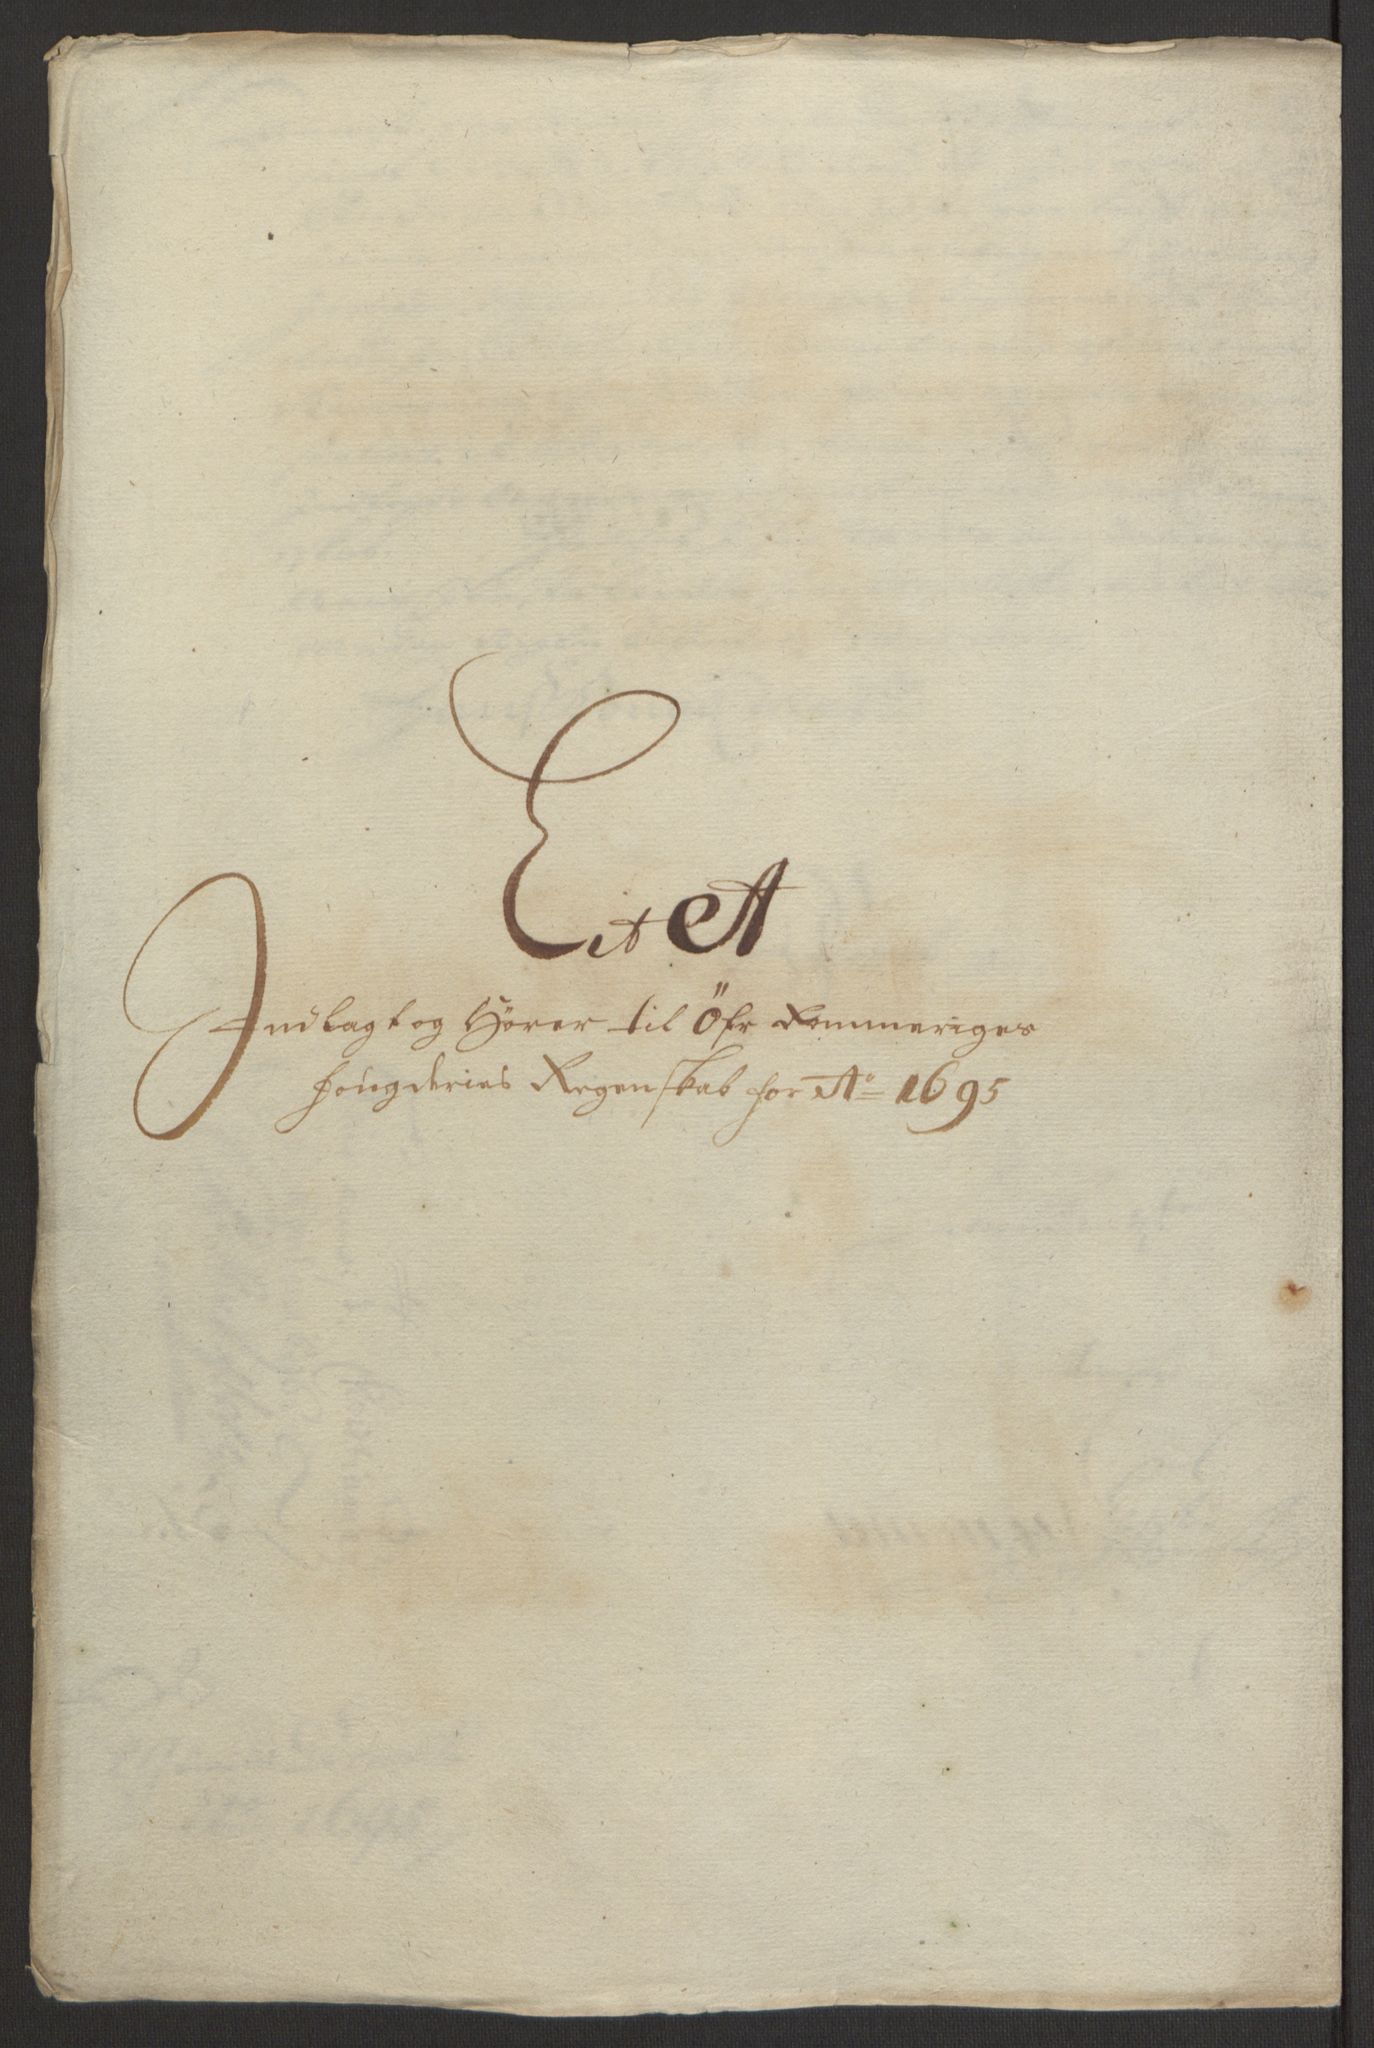 Lit A
Indlagt og Hörer til Öfr Rommeriges
fougderies Regenskab for Ao 1695